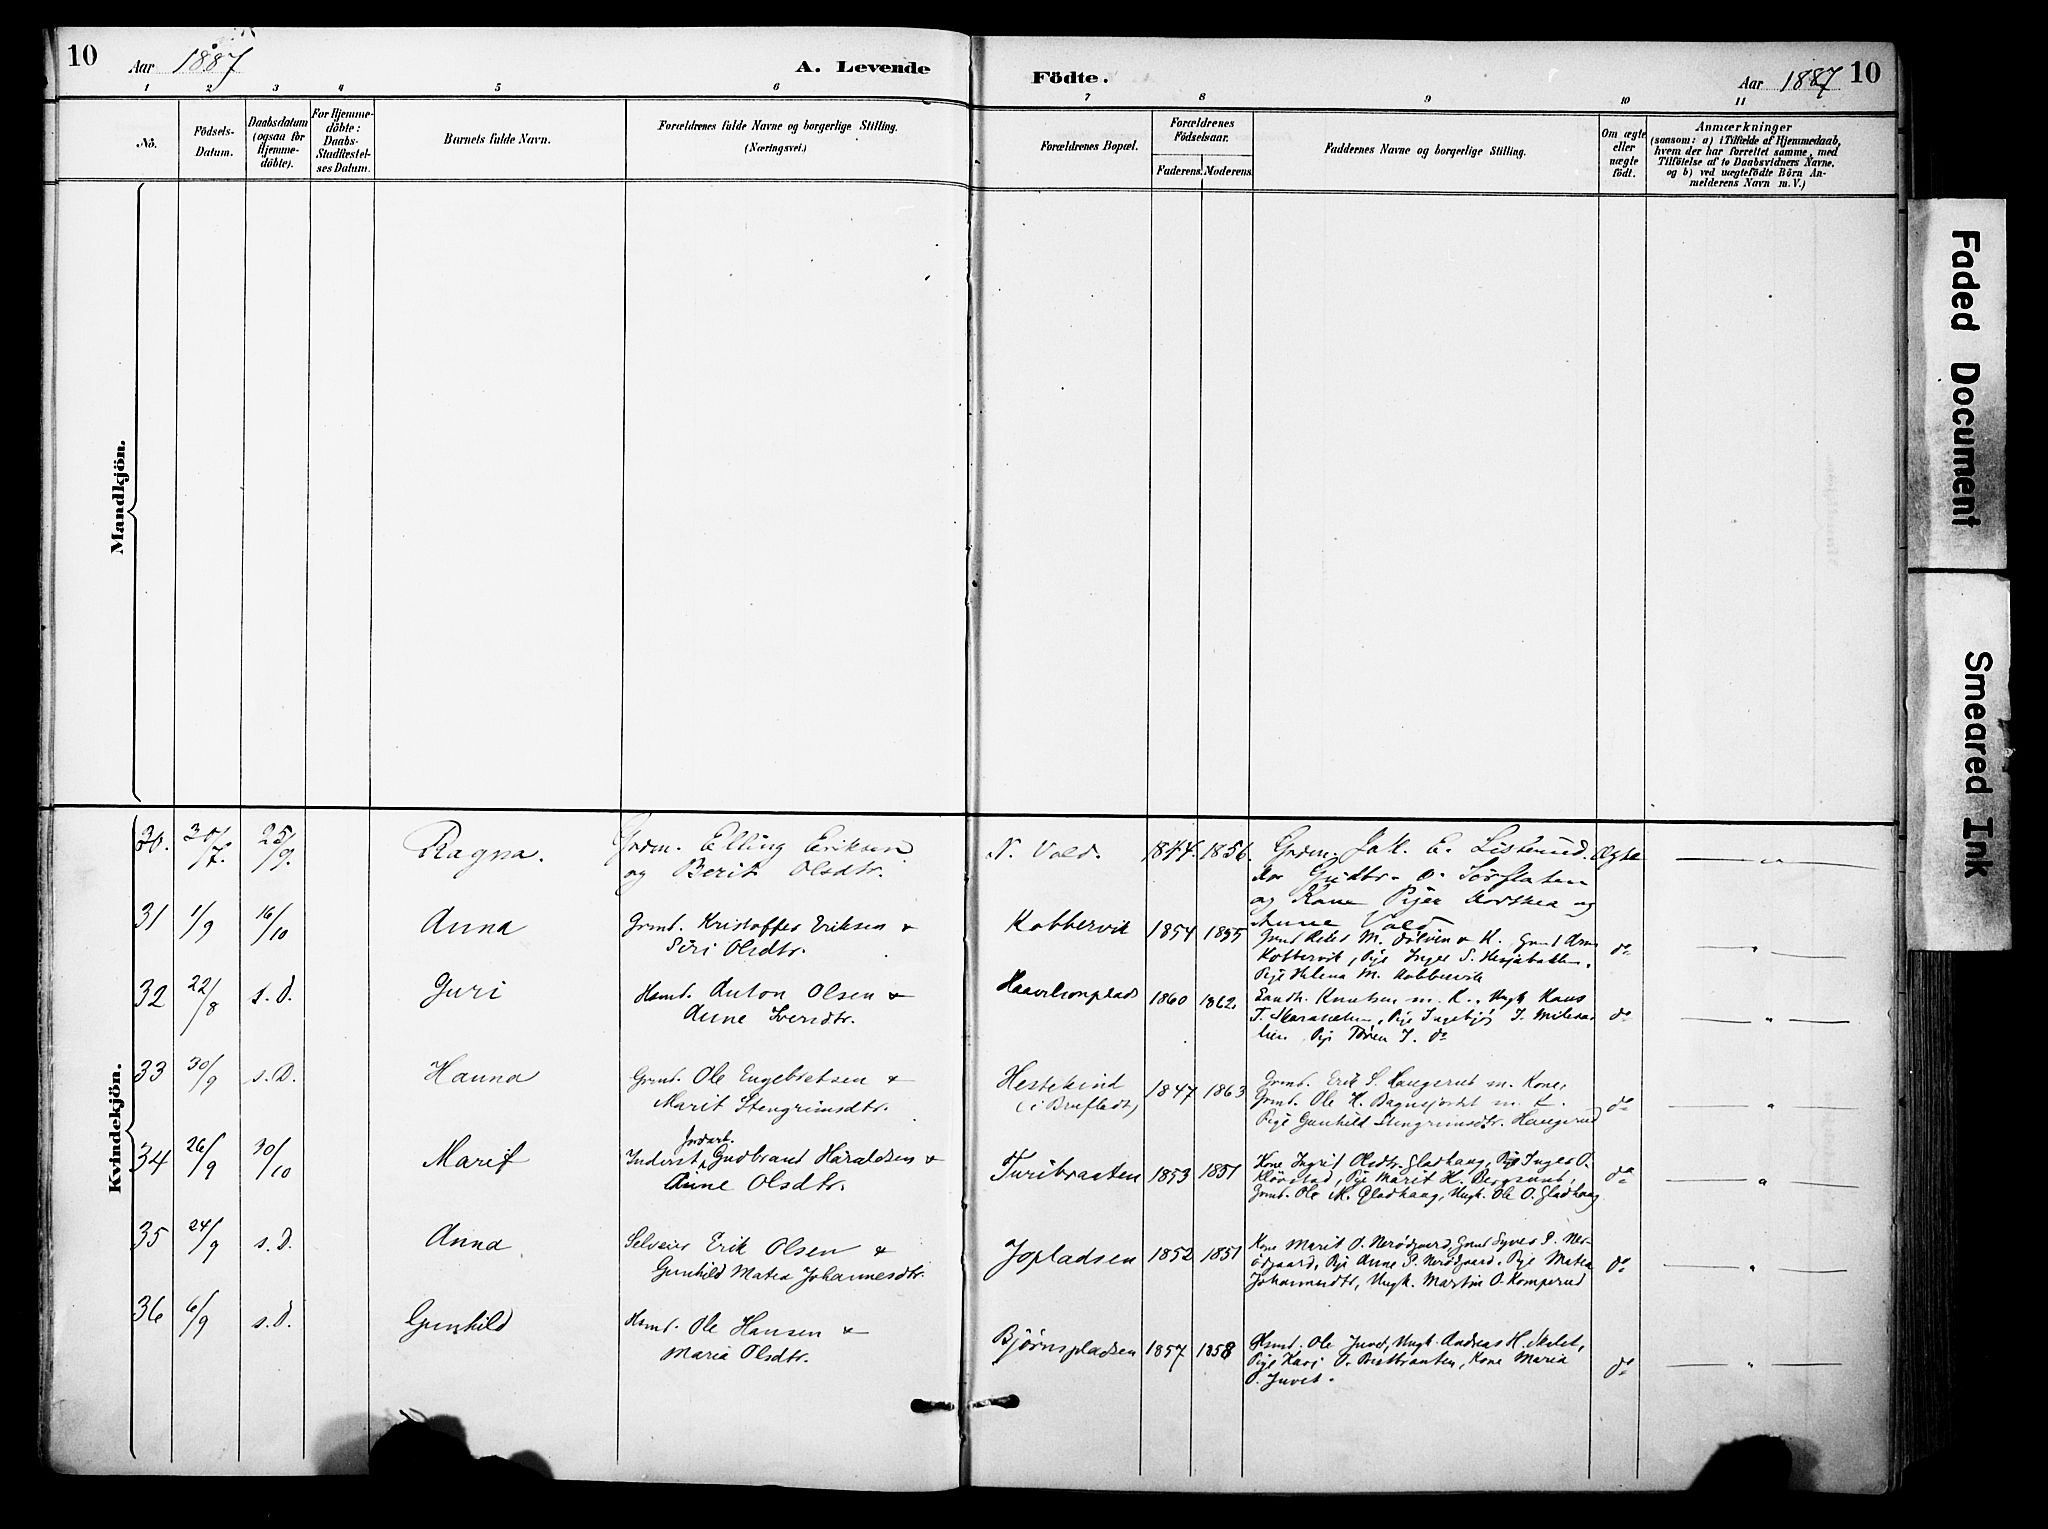 10
Aar 1887
A. Levende
Födte.
Aar 1887
10
1 2 3 4 5 6 7 8 9 10 11
No.
Födsels-
Datum.
Daabsdatum
(ogsaa for
Hjemme-
döbte).
For Hjemme-
döbte:
Daabs-
Stadfæstel-
ses Datum.
Barnets fulde Navn.
Forældrenes fulde Navne og borgerlige Stilling.
(Næringsvei.)
Forældrenes Bopæl.
Forældrenes
Födselsaar.
Faderens. Moderens.
Faddernes Navne og borgerlige Stilling.
Om ægte
eller
uægte
født.
Anmærkninger
(saasom: a) i Tilfælde af Hjemmedaab,
hvem der har forrettet samme, med
Tilföielse af to Daabsvidners Navne,
og b) ved uægtefödte Börn An-
melderens Navn m. V.)
Mandkjön.
Kvindekjön.
30. 30/7. 25/9. Ragna. Grdm. Elling Eriksen
og Berit Olsdtr.
N. Vold. 1844. 1856. Grdm. E.
og Kone Pige og
Anne Vold
Ægte — " —
31 1/9 16/10 Anna Grmd. Kristoffer Eriksen &
Siri Olsdtr.
Kobbervik 1854 1855 M. & K.
Kobbervik, Pige Inger S.
Pige Helena M. Kobbervik
do — " —
32 22/8 s. D. Guri Hsmd. Anton Olsen &
Anne
1860 1862 Knutsen m. K., Ungk. Hans
T. Pige J.
Pige J. do
do — " —
33 30/9 s. D. Hanna Grmd. Ole Engebretsen &
Marit Stengrimsdtr.
Hestekind
(i Brufladt)
1847 1863 Grmd. Erik S. Haugerud m. Kone,
Grmd. Ole H. Bagnsjordet m. K.
Pige Gunhild Stengrimsdtr. Haugerud
do — " —
34 26/9 30/10 Marit Jordarb.
Inderst Gudbrand Haraldsen &
Anne Olsdtr.
Turibraaten 1853 1851 Kone Ingrid Olsdtr. Gladhaug, Pige Inger O.
Pige Marit H.
Grmd. Ole M. Gladhaug, Ungk. Ole O. Gladhaug
do — " —
35 24/9 s. D. Anna Selveier Erik Olsen &
Gunhild Matea Johannesdtr.
Jopladsen 1852 1851 Kone Marit O. Nerødgaard, Grmd. Syver P. Ner-
ødgaard, Pige Anne P. Nerødgaard, Pige Matea
Johannesdtr, Ungk. Martin O. Komperud
do — " —
36 6/9 s. D. Gunhild Hsmd. Ole Hansen &
Maria Olsdtr.
Bjørnspladsen 1857 1858 Hsmd. Ole Juvet, Ungk. Andreas H.
Pige Kari O. Kone Maria
O. Juvet.
do — " —
Faded Document
Smeared Ink